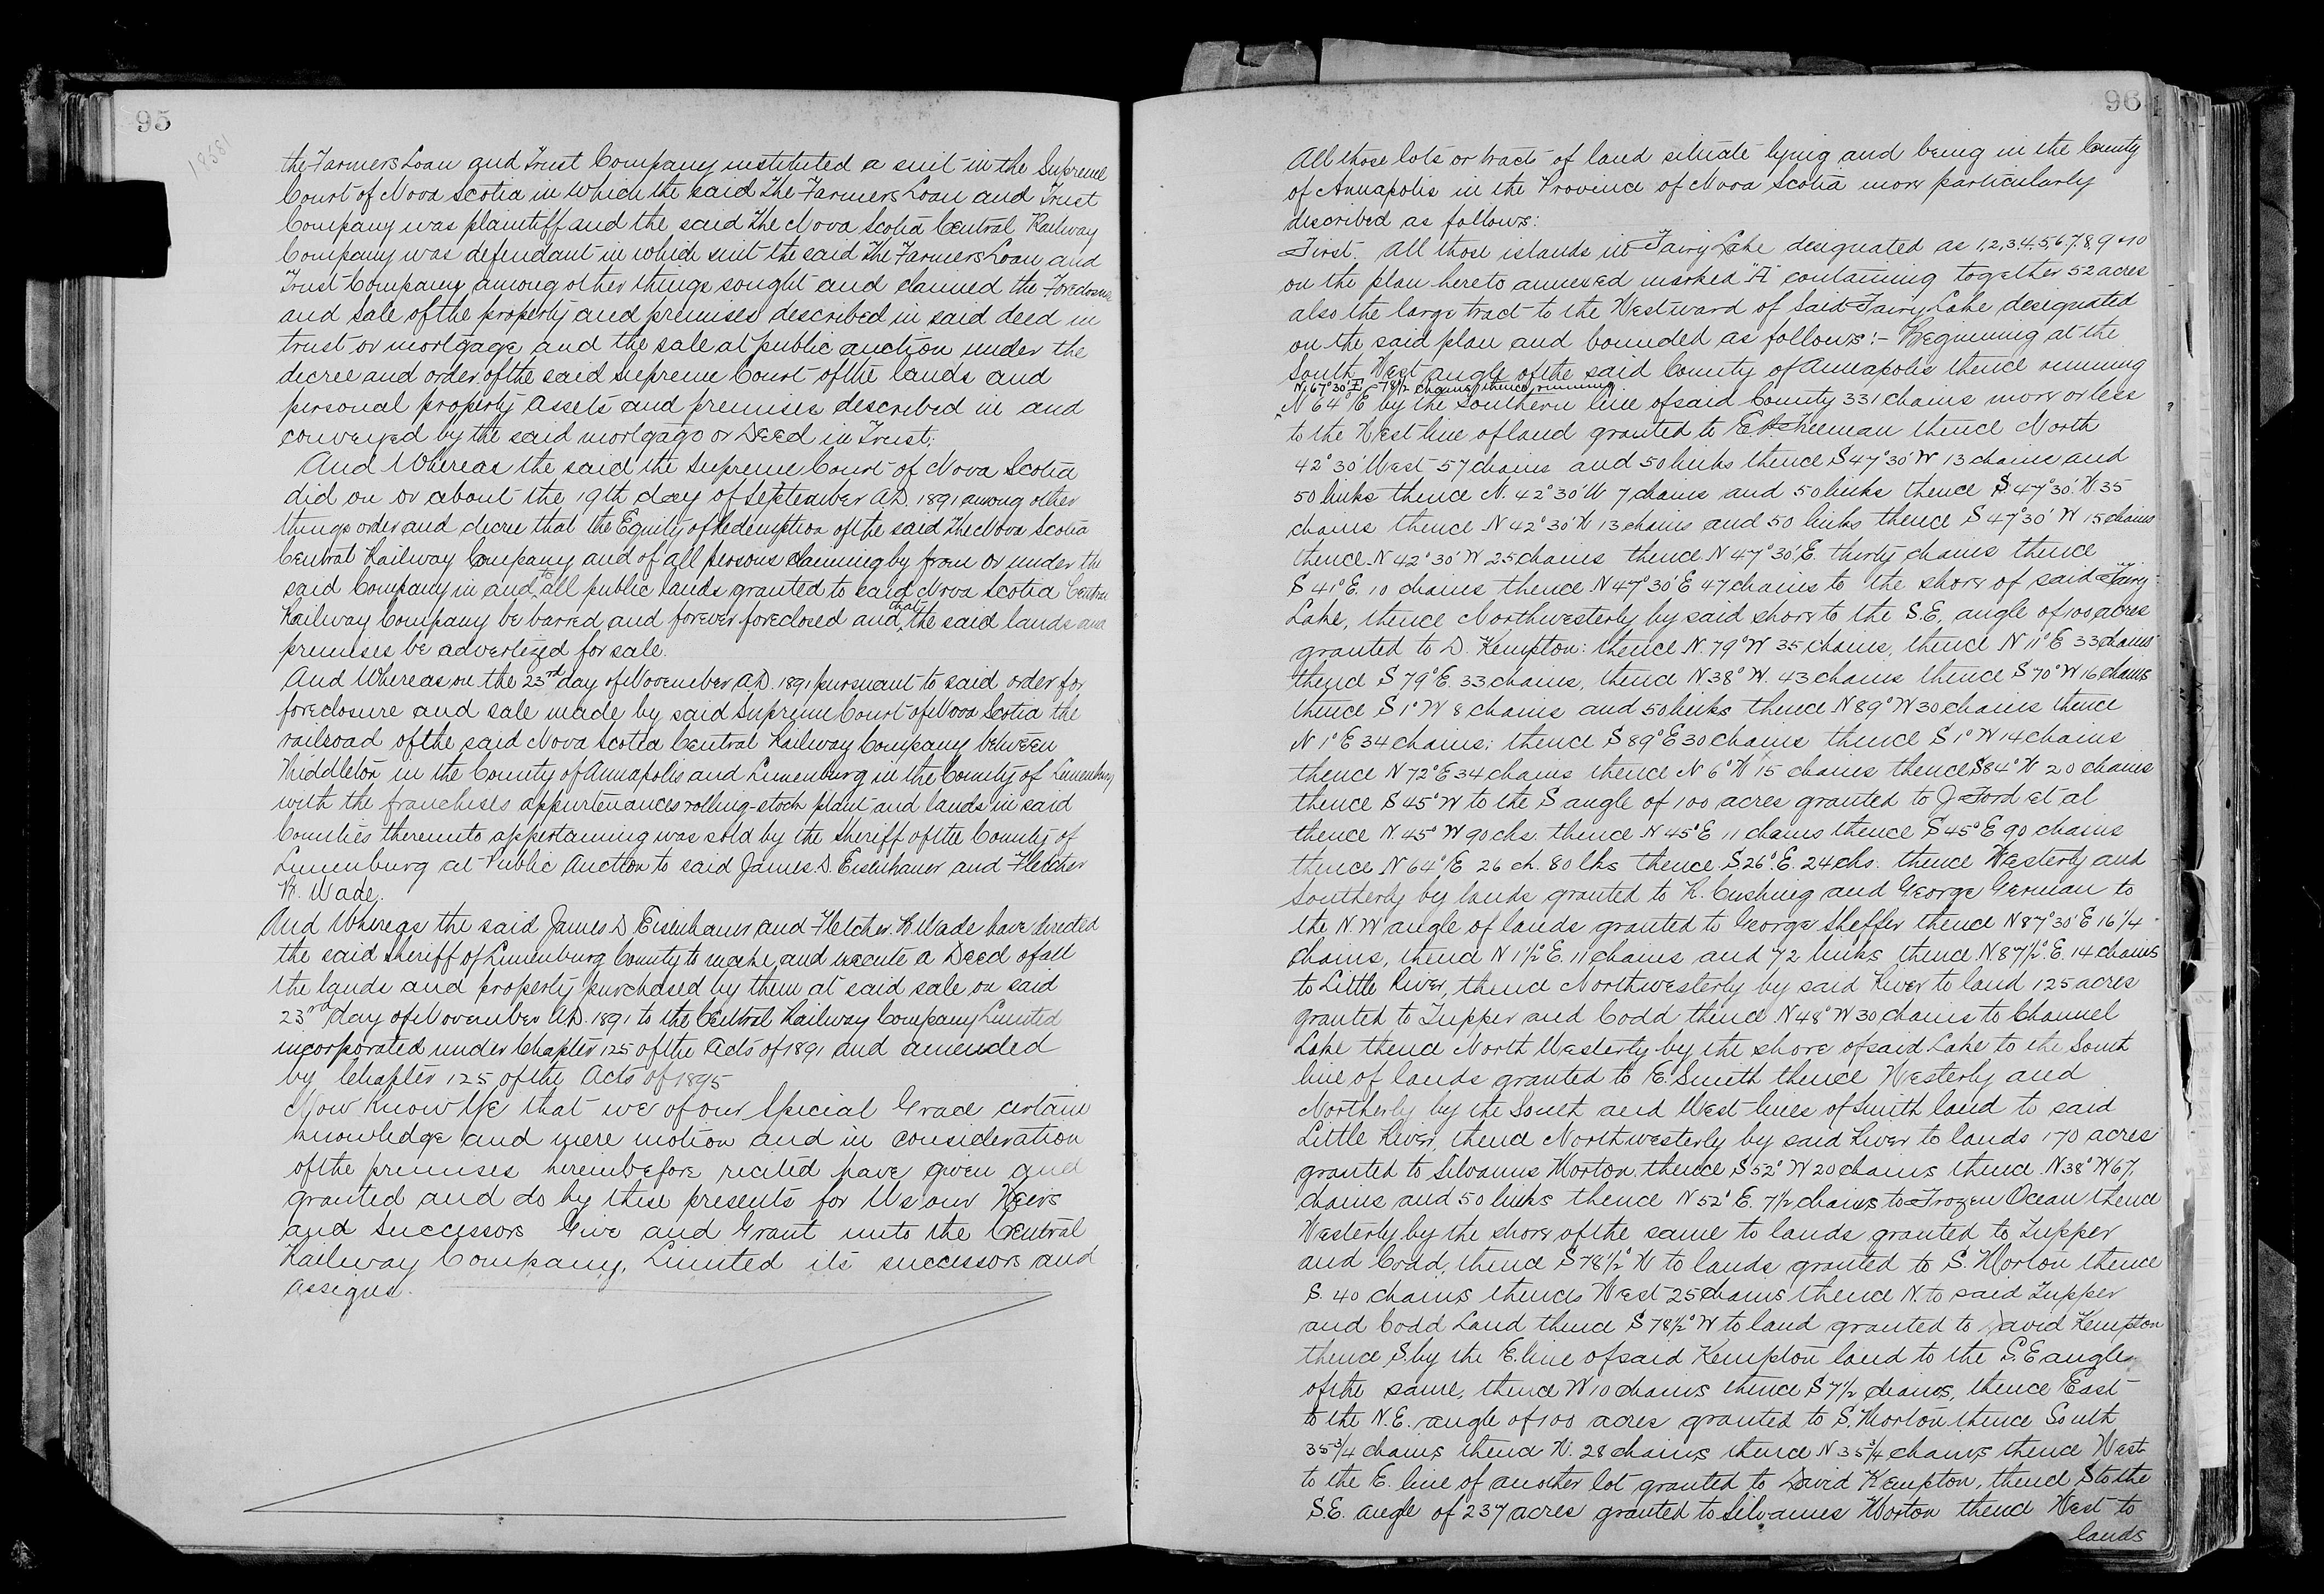 95
18581
the Farmers Loan and Trust Company instituted a suit in the Supreme
Court of Nova Scotia in which the said The Farmers Loan and Trust
Company was plaintiff and the said The Nova Scotia Central Railway
Company was defendant in which suit the said The Farmers Loan and
Trust Company among other things sought and claimed the Foreclosure
and sale of the property and premises described in said deed in
trust or mortgage and the sale at public auction under the
decree and order of the said Supreme Court of the lands and
personal property assets and premises described in and
conveyed by the said mortgage or Deed in Trust;
And Whereas the said the Supreme Court of Nova Scotia
did on or about the 19th day of September A.D. 1891 among other
things order and decree that the Equity of Redemption of the said The Nova Scotia
Central Railway Company and of all persons claiming by from or under the
said Company in and to all public lands granted to said Nova Scotia Central
Railway Company be barred and forever foreclosed and that the said lands and
premises be advertized for sale.
And Whereas on the 23rd day of November A.D. 1891 pursuant to said order for
foreclosure and sale made by said Supreme Court of Nova Scotia the
railroad of the said Nova Scotia Central Railway Company between
Middleton in the County of Annapolis and Lunenburg in the County of Lunenburg
with the franchises appurtenances rolling-stock plant and lands in said
Counties thereunto appertaining was sold by the Sheriff of the County of
Lunenburg at Public Auction to said James D. Eisenhauer and Fletcher
B. Wade.
And Whereas the said James D Eisenhauer and Fletcher B Wade have directed
the said Sheriff of Lunenburg County to make and execute a Deed of all
the lands and property purchased by them at said sale on said
23rd day of November A.D. 1891 to the Central Railway Company Limited
incorporated under Chapter 125 of the Acts of 1891 and amended
by Chapter 125 of the Acts of 1895
Now Know Ye that we of our Special Grace certain
knowledge and mere motion and in consideration
of the premises hereinbefore recited have given and
granted and do by these presents for Us our Heirs
and Successors Give and Grant unto the Central
Railway Company, Limited its successors and
assigns.
96
All those lots or tracts of land situate lying and being in the County
of Annapolis in the Province of Nova Scotia more particularly
discribed as follows:
First. All those islands in Fairy Lake designated as 1,2,3,4,5,6,7,8,9 & 10
on the plan hereto annexed marked "A" containing together 52 acres
also the large tract to the Westward of said Fairy Lake designated
on the said plan and bounded as follows:- Beginning at the
South West angle of the said County of Annapolis thence running
N 67° 30' E 78 1/2 chains thence running
N 64° E by the Southern line of said County 331 chains more or less
to the West line of land granted to Freeman thence North
42° 30' West 57 chains and 50 links thence S 47° 30' W 13 chains and
50 links thence N. 42° 30' W 7 chains and 50 links thence S. 47° 30'. W. 35
chains thence N 42° 30' W 13 chains and 50 links thence S 47° 30' W 15 chains
thence N 42° 30' W 25 chains thence N 47° 30' E. thirty chains thence
S 41° E. 10 chains thence N 47° 30' E 47 chains to the shore of said Fairy
Lake, thence Northwesterly by said shore to the S.E. angle of 100 acres
granted to D. Kempton: thence N. 79° W 35 chains, thence N 11° E 33 chains
thence S 79° E. 33 chains, thence N 38° W. 43 chains thence S 70° W 16 chains
thence S 1° W 8 chains and 50 links thence N 89° W 30 chains thence
N 1° E 34 chains; thence S 89° E 30 chains thence S 1° W 14 chains
thence N 72° E 34 chains thence N 6° W 15 chains thence S 84° W 20 chains
thence S 45° W to the S angle of 100 acres granted to J Ford et al
thence N. 45° W 90 chs. thence N 45° E 11 chains thence S 45° E 90 chains
thence N 64° E 26 ch. 80 lks thence S. 26° E. 24 chs. thence Westerly and
Southerly by lands granted to H. Cushing and George German to
the N.W angle of lands granted to George Sheffer thence N 87° 30' E 16 1/4
chains, thence N 1 1/2° E. 11 chains and 72 links thence N. 87 1/2° E. 14 chains
to Little River, thence Northwesterly by said River to land 125 acres
granted to Tupper and Codd thence N 48° W 30 chains to Channel
Lake thence North Westerly by the shore of said Lake to the South
line of lands granted to E. Smith thence Westerly and
Northerly by the South and West lines of Smith land to said
Little River, thence Northwesterly by said River to lands 170 acres
granted to Silvanus Morton thence S 52° W 20 chains thence N 38° W 67,
chains and 50 links thence N 52° E. 7 1/2 chains to Frozen Ocean thence
Westerly by the shore of the same to lands granted to Tupper
and Codd, thence S 78 1/2° W to lands granted to S. Morton thence
S. 40 chains thence West 25 chains thence N. to said Tupper
and Codd Land thence S 78 1/2° W to land granted to David Kempton
thence S. by the E. line of said Kempton land to the S.E angle
of the same, thence W 10 chains thence S 7 1/2 chains, thence East
to the N.E. angle of 100 acres granted to S. Morton thence South
35 3/4 chains thence W. 28 chains thence N 35 3/4 chains thence West
to the E. line of another lot granted to David Kempton, thence S to the
S.E. angle of 237 acres granted to Silvanus Morton thence West to
lands